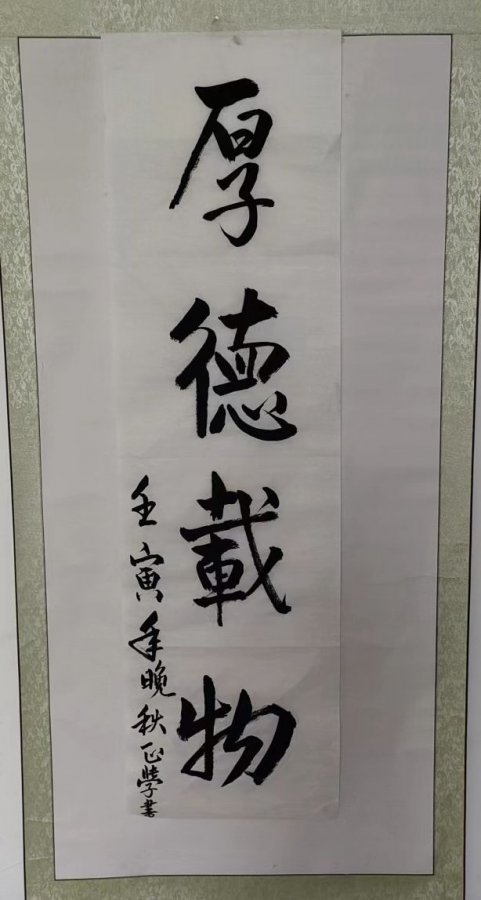 厚德載物
壬寅年晚秋正學書